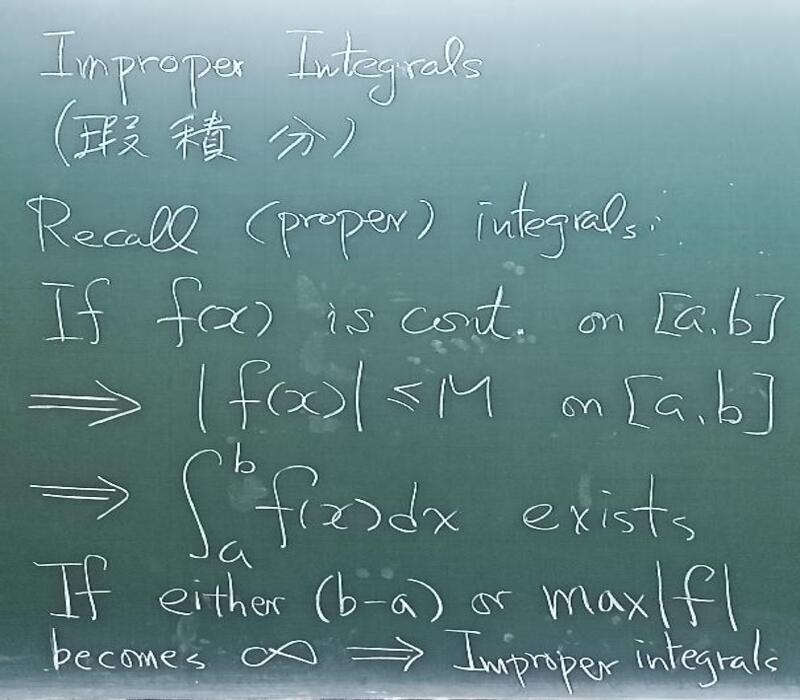 Improper Integrals
(瑕積分)
Recall (proper) integrals.
If f(x) is cont. on [a,b]
⟹ |f(x)| ≤ M on [a,b]
⟹ ∫_a^b f(x)dx exists
If either (b-a) or max|f|
becomes ∞ ⟹ Improper integrals